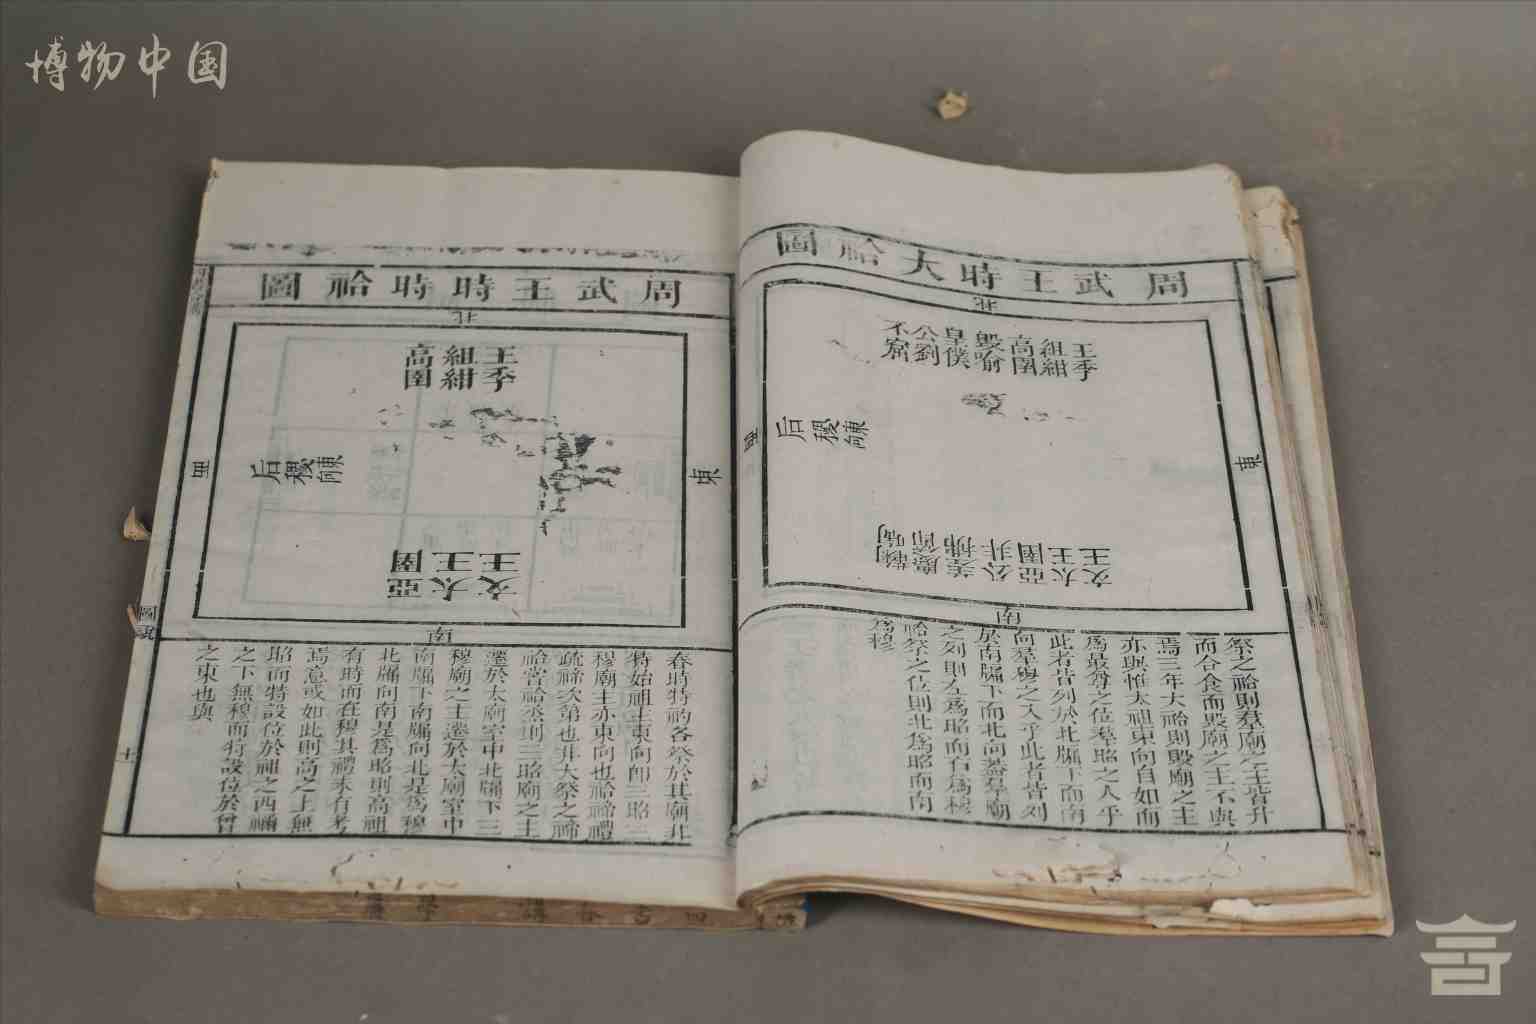 博物中国
周武王時大祫圖
北
王季
組紺
高圉
毀喻
皇僕
公劉
不窋
后稷東向
東
文王
太王
亞圉
公非
羌弗
慶節
鞠
南
祭之祫則羣廟之主皆升
而合食而毀廟之主不與
焉三年大祫則毀廟之主
亦與惟太祖東向自如而
爲最尊之位羣昭之入乎
此者皆列於北牖下而南
向羣穆之入乎此者皆列
於南牖下而北向蓋羣廟
之列則左爲昭而右爲穆
祫祭之位則北爲昭而南
爲穆
周武王時時祫圖
北
王季
組紺
高圉
后稷東向
東
文王
太王
亞圉
南
春時特礿各祭於其廟非
特始祖主東向卽三昭三
穆廟主亦東向也祫禘禮
疏禘次第也非大祭之禘
祫嘗祫烝則三昭廟之主
遷於太廟室中北牖下三
穆廟之主遷於太廟室中
南牖下南牖向北是爲穆
北牖向南是爲昭則高祖
有時而在穆其禮未有考
焉意或如此則高之上無
昭而特設位於祖之西禰
之下無穆而特設位於曾
之東也與
圖說
十